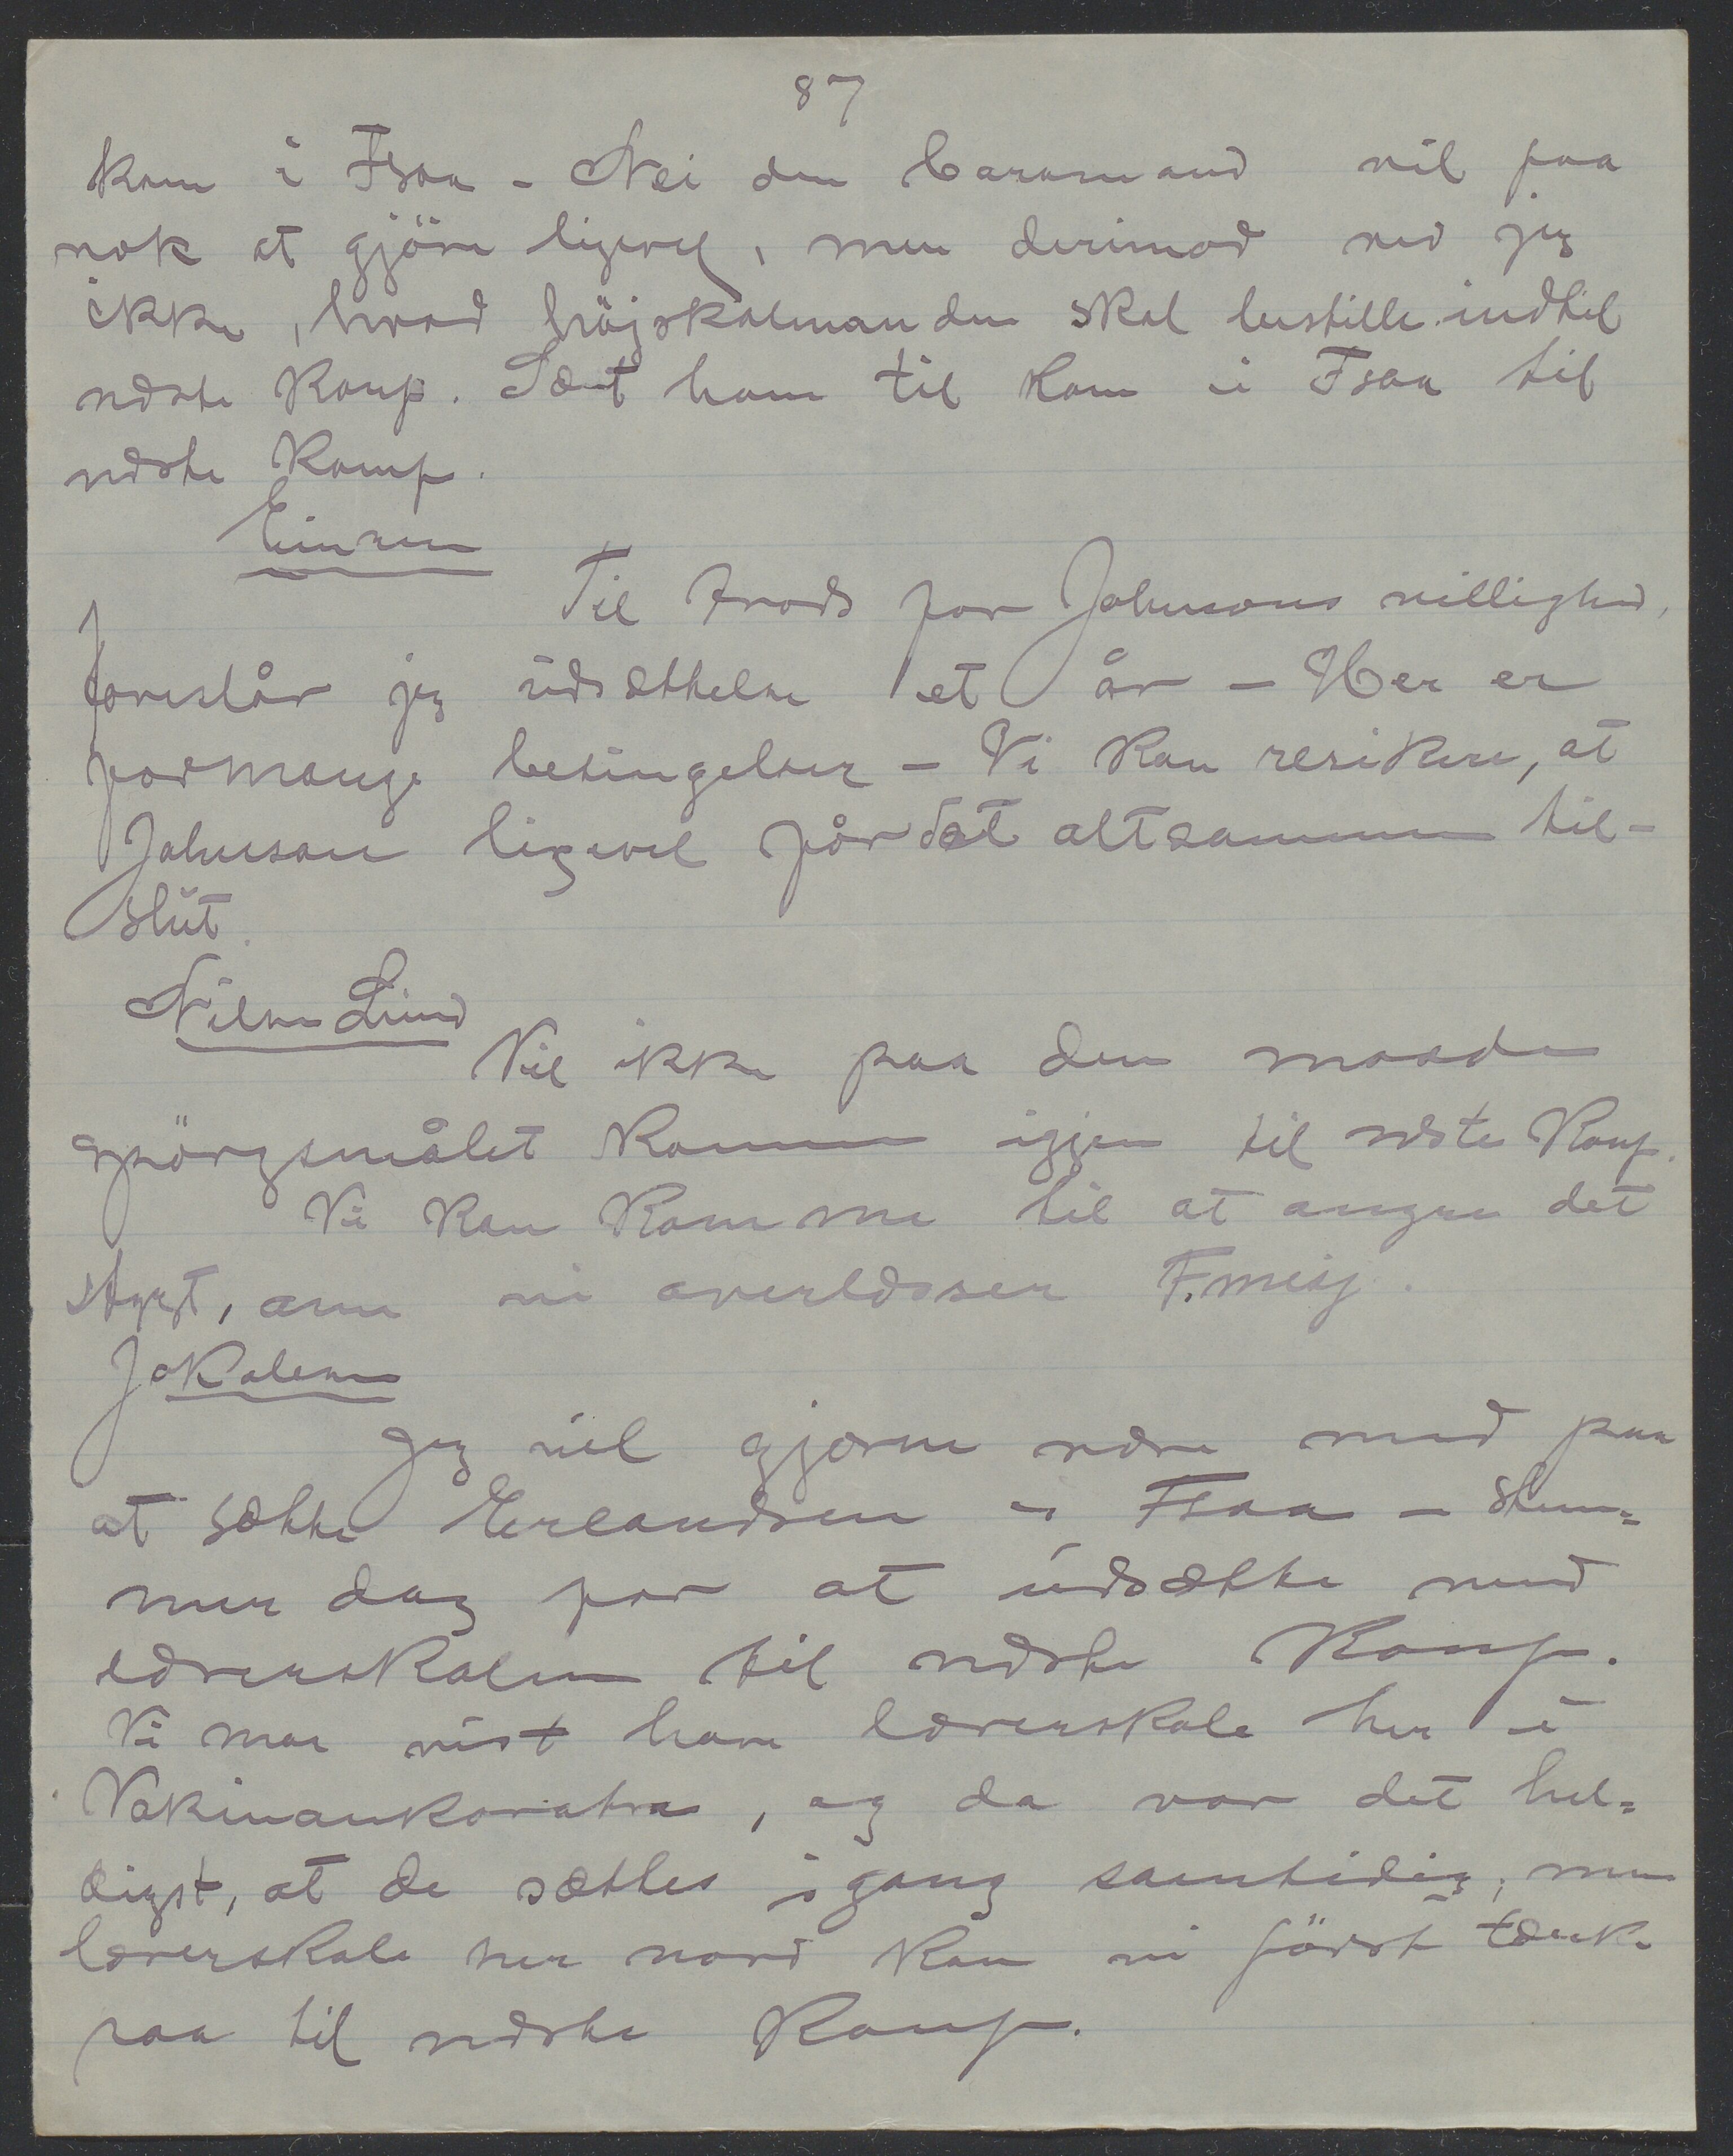 87
kom i Fsoa - Nei den baramand vil faa
nok at gjöre ligevel, men derimod ved jeg
ikke, hvad höjskolmanden skal bestille indtil
næste Konf. Sæt ham til kom i Fsoa til
næste Konf.
Einrem
Til trods for Johnsons villighed,
foreslår jeg udsættelse et år - Her er
formange betingelser - Vi kan resikere, at
Johnson ligevel får det altsammen til-
slut.
Nilsen Lund
Vil ikke paa den maade
spörgsmålet komme igjen til næste Konf.
Vi kan komme til at angre det
stygt, om vi overlæsser F.misj.
Jakobsen
Jeg vil gjerne være med paa
at sætte Erlandsen i Fsoa - stem=
mer dog for at udsætte med
lærerskolen til næste Konf.
Vi maa vist have lærerskole her i
Vakinankaratra, og da var det hel=
digst, at de sættes igang samtidig, men
lærerskole her nord kan vi först tænke
paa til næste Konf.